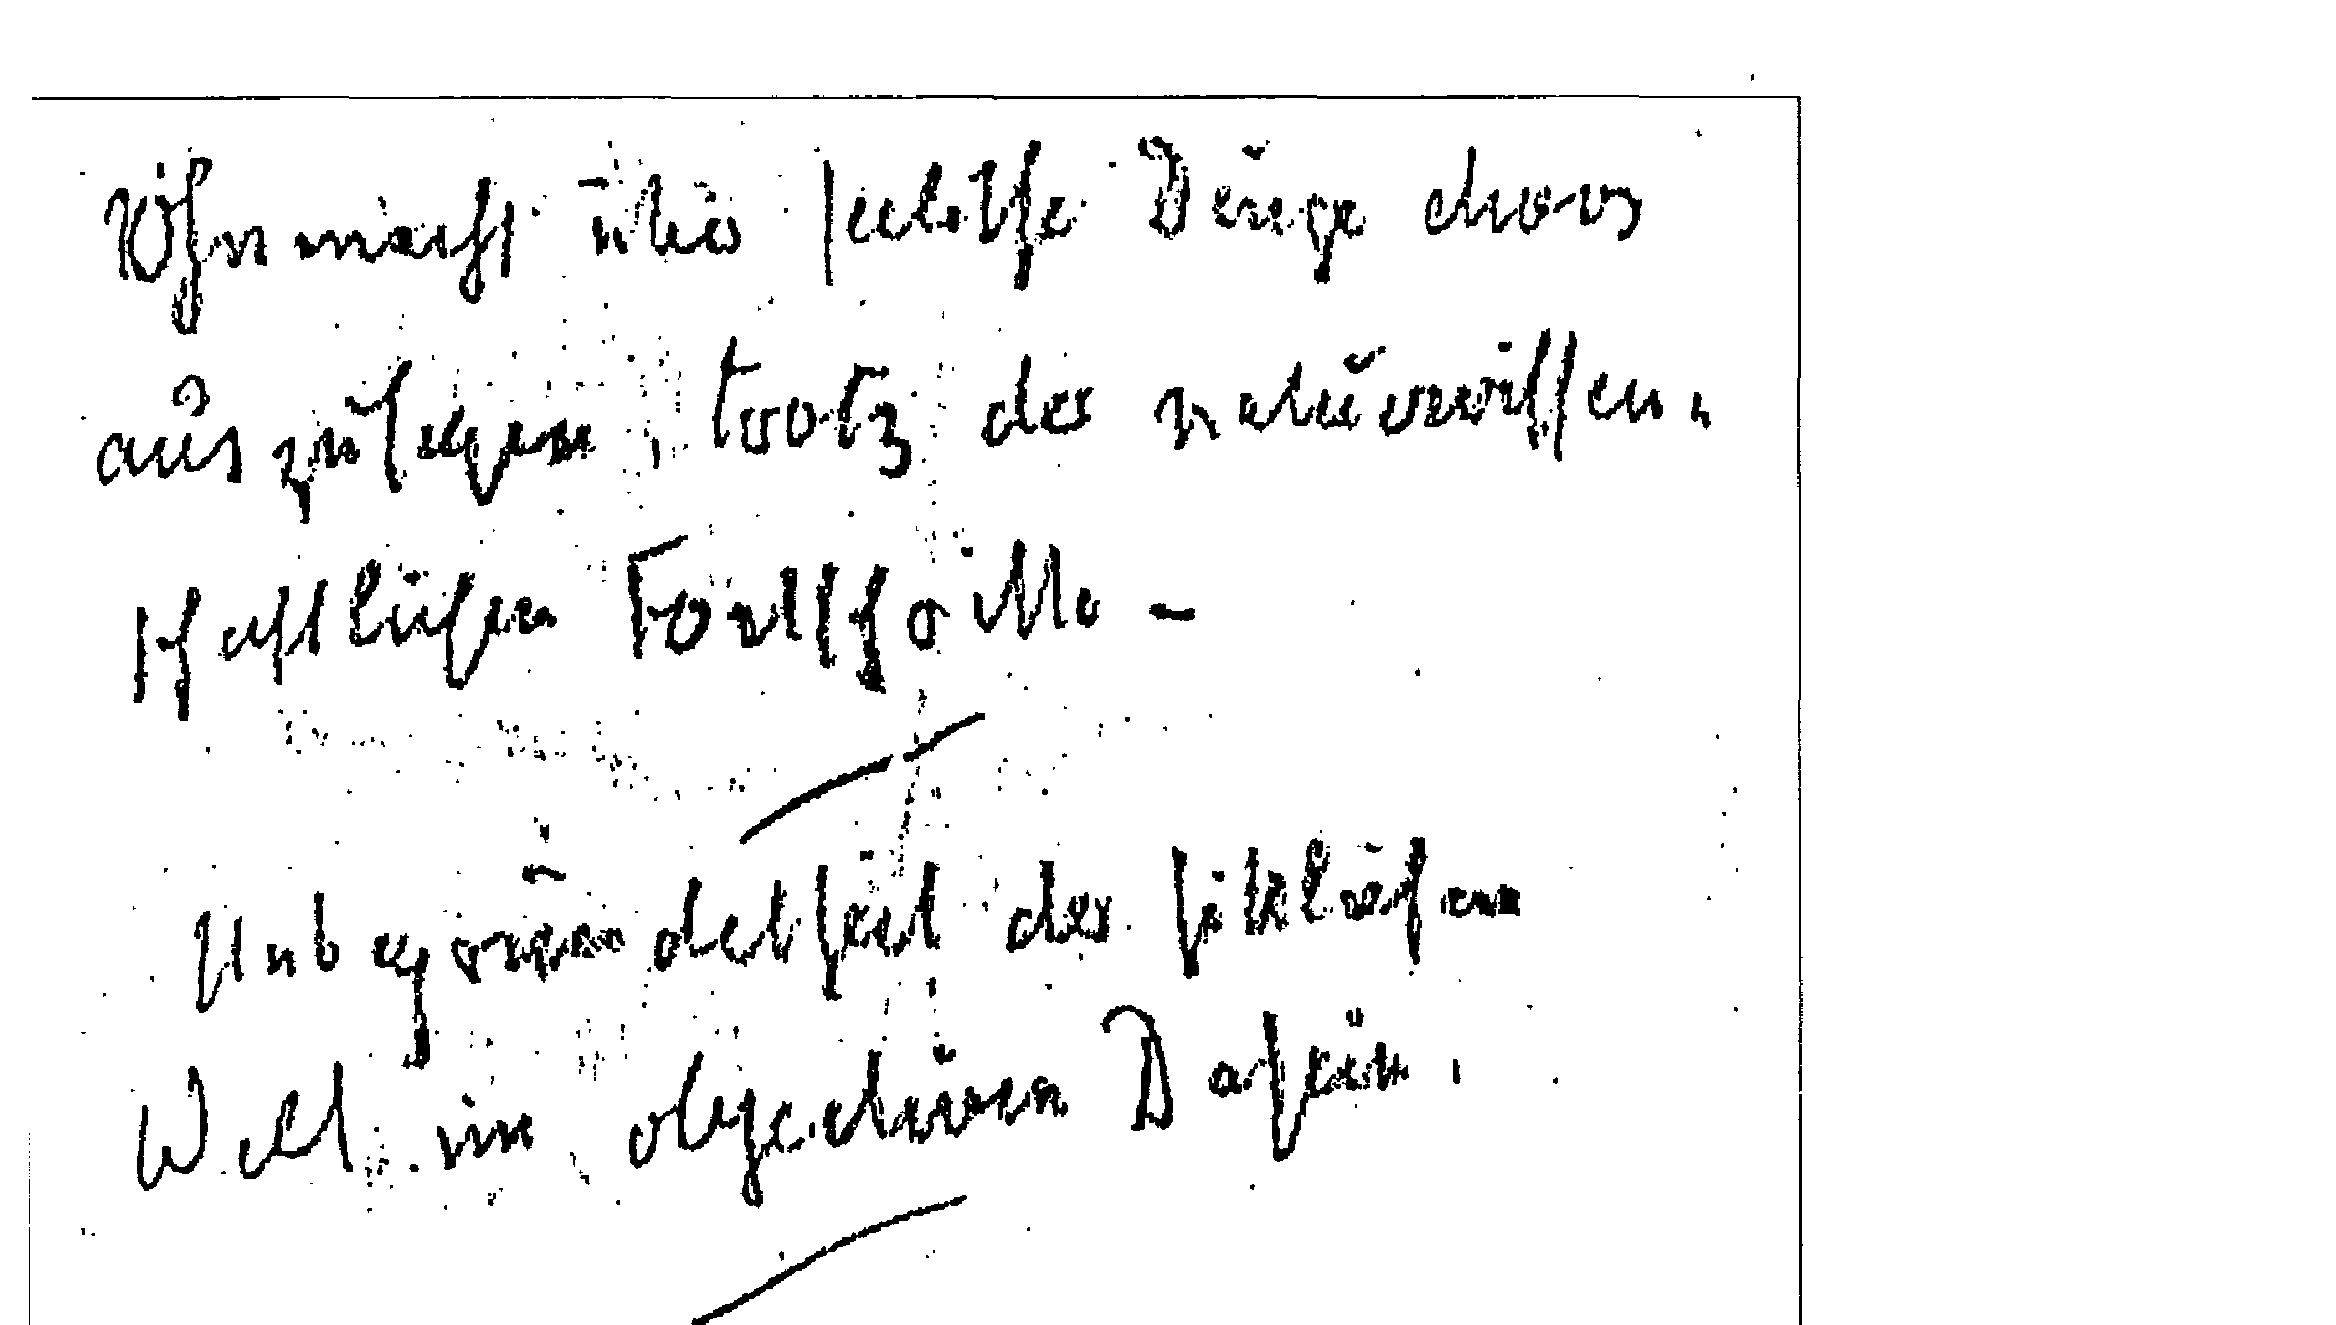 Ohnmacht über solche Dinge etwas
auszusagen, trotz der naturwissen-
schaftlichen Fortschritte -
Unbegründetheit der sittlichen
Welt im objectiven Dasein.